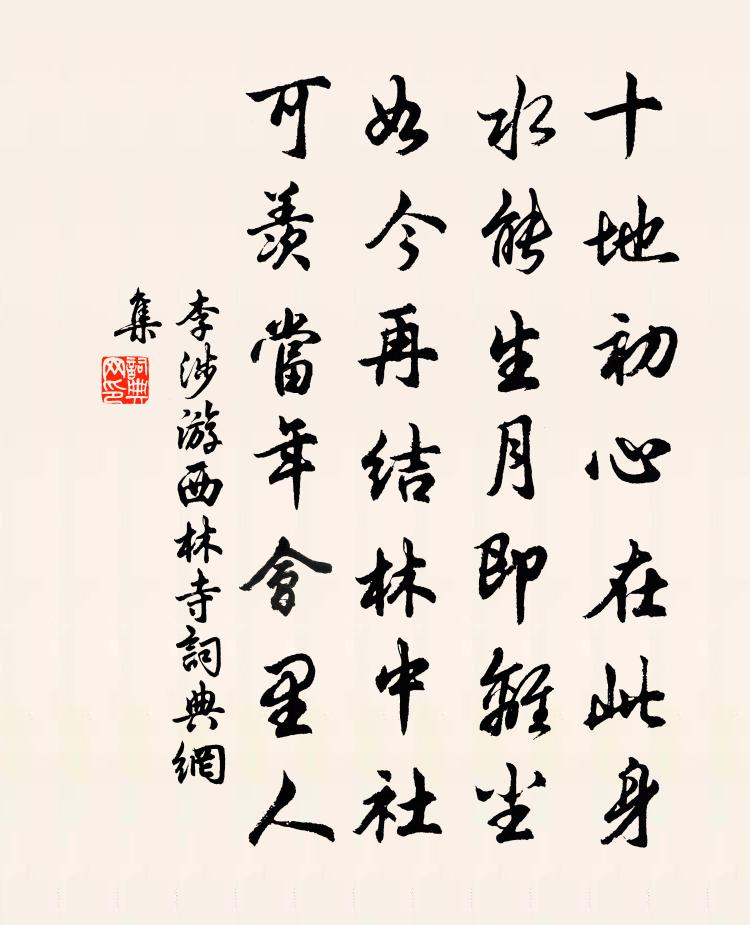 十地初心在此身
水能生月即離尘
如今再結林中社
可羨當年會里人
李涉游西林寺詞典網
集
詞典
网印